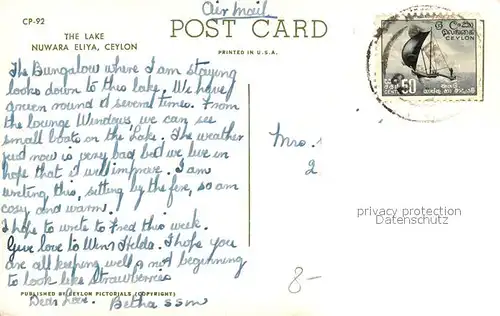 CP-92
THE LAKE
NUWARA ELIYA, CEYLON
Air Mail
POST CARD
PRINTED IN U.S.A.
The Bungalow where I am staying
looks down to this lake. We have
driven round it several times. From
the lounge Windows we can see
small boats on the Lake. The weather
just now is very bad but we live in
hope that it will improve. I am
writing this, sitting by the fire, so am
cosy and warm.
I hope to write to Fred this week.
Give love to Winn Helda. I hope you
are all keeping well & not beginning
to look like Strawberries
Dear Love. Betha
PUBLISHED BY CEYLON PICTORIALS (COPYRIGHT)
Mrs.
2
8-
ලංකා
இலங்கை
CEYLON
50
CENTS
privacy protection
Datenschutz